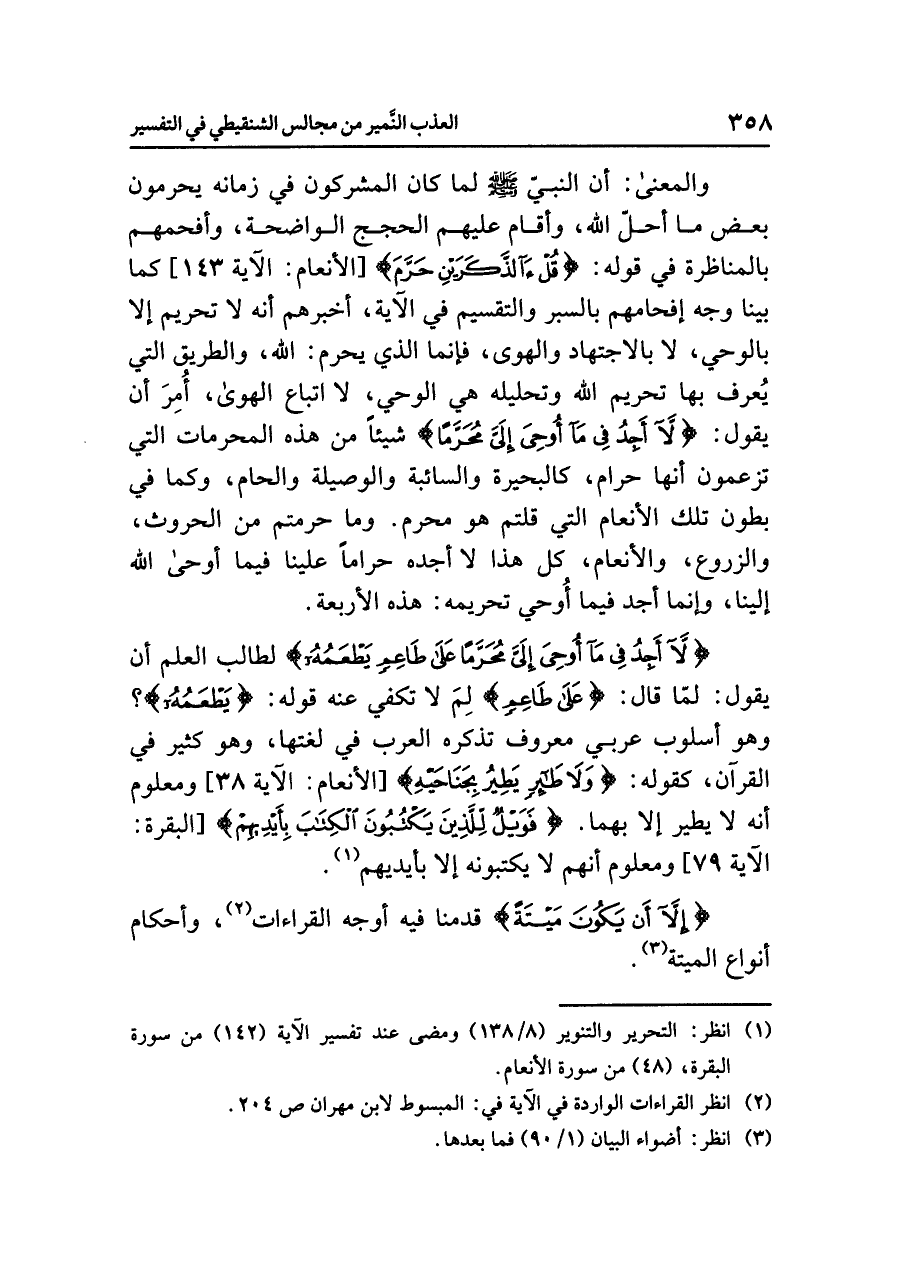 ٣٥٨ العذب النَّمير من مجالس الشنقيطي في التفسير
والمعنىٰ: أن النبيّ ﷺ لما كان المشركون في زمانه يحرمون
بعض ما أحلّ الله، وأقام عليهم الحجج الواضحة، وأفحمهم
بالمناظرة في قوله: ﴿قُلْ ءَآلذَّكَرَيْنِ حَرَّمَ﴾ [الأنعام: الآية ١٤٣] كما
بينا وجه إفحامهم بالسبر والتقسيم في الآية، أخبرهم أنه لا تحريم إلا
بالوحي، لا بالاجتهاد والهوى، فإنما الذي يحرم: الله، والطريق التي
يُعرف بها تحريم الله وتحليله هي الوحي، لا اتباع الهوىٰ، أُمِرَ أن
يقول: ﴿لَّآ أَجِدُ فِى مَآ أُوحِىَ إِلَىَّ مُحَرَّمًا﴾ شيئاً من هذه المحرمات التي
تزعمون أنها حرام، كالبحيرة والسائبة والوصيلة والحام، وكما في
بطون تلك الأنعام التي قلتم هو محرم. وما حرمتم من الحروث،
والزروع، والأنعام، كل هذا لا أجده حراماً علينا فيما أوحىٰ الله
إلينا، وإنما أجد فيما أُوحي تحريمه: هذه الأربعة.
﴿لَّآ أَجِدُ فِى مَآ أُوحِىَ إِلَىَّ مُحَرَّمًا عَلَىٰ طَاعِمٍ يَطْعَمُهُۥ﴾ لطالب العلم أن
يقول: لمّا قال: ﴿عَلَىٰ طَاعِمٍ﴾ لِمَ لا تكفي عنه قوله: ﴿يَطْعَمُهُۥ﴾؟
وهو أسلوب عربي معروف تذكره العرب في لغتها، وهو كثير في
القرآن، كقوله: ﴿وَلَا طَٰٓئِرٍ يَطِيرُ بِجَنَاحَيْهِ﴾ [الأنعام: الآية ٣٨] ومعلوم
أنه لا يطير إلا بهما. ﴿فَوَيْلٌ لِّلَّذِينَ يَكْتُبُونَ ٱلْكِتَٰبَ بِأَيْدِيهِمْ﴾ [البقرة:
الآية ٧٩] ومعلوم أنهم لا يكتبونه إلا بأيديهم(١).
﴿إِلَّآ أَن يَكُونَ مَيْتَةً﴾ قدمنا فيه أوجه القراءات(٢)، وأحكام
أنواع الميتة(٣).
(١) انظر: التحرير والتنوير (١٣٨/٨) ومضى عند تفسير الآية (١٤٢) من سورة
البقرة، (٤٨) من سورة الأنعام.
(٢) انظر القراءات الواردة في الآية في: المبسوط لابن مهران ص ٢٠٤.
(٣) انظر: أضواء البيان (٩٠/١) فما بعدها.